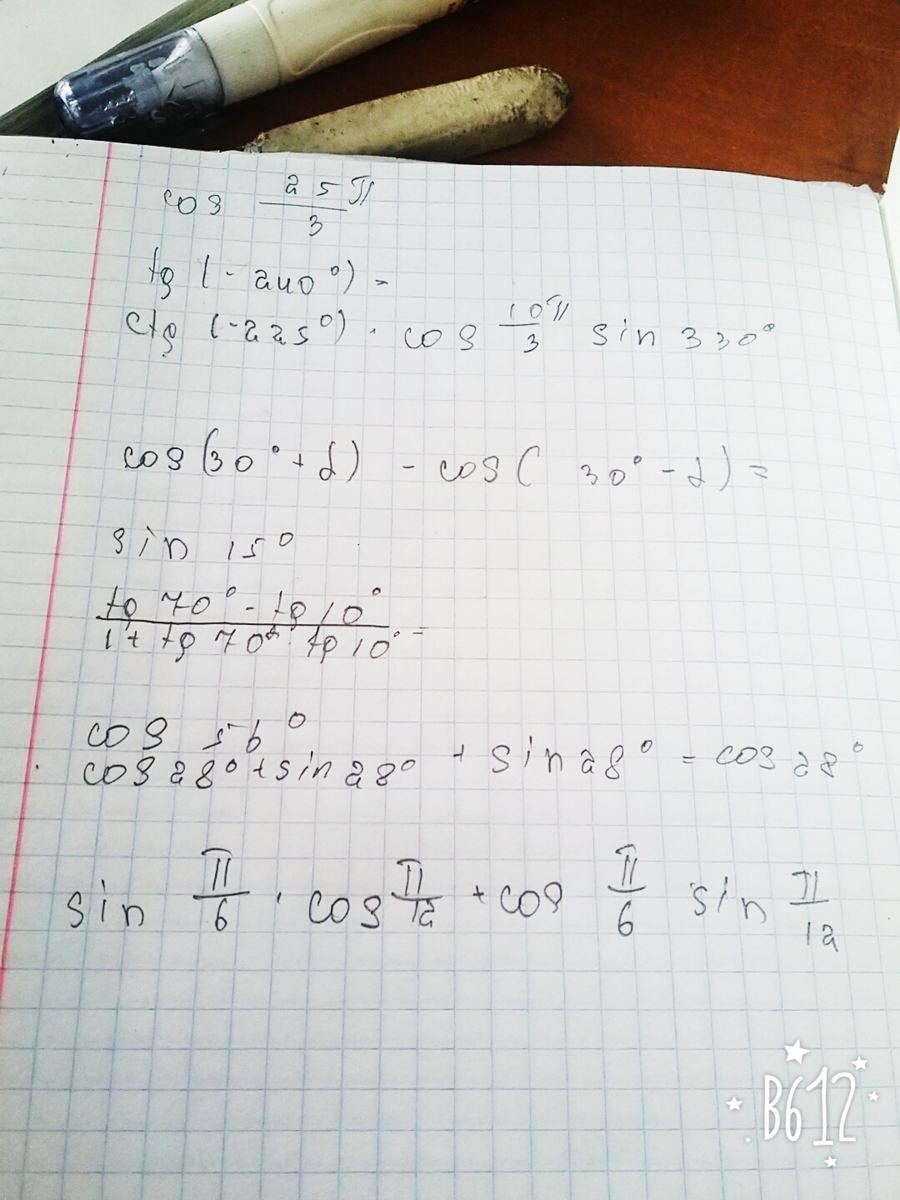 cos 25π/3
tg (-240°) =
ctg (-225°) · cos 10π/3 sin 330°
cos(30° + α) - cos( 30° - α) =
sin 15°
tg 70° - tg 10°
1+ tg 70° tg 10° =
cos 56°
cos 28° + sin 28° + sin 28° = cos 28°
sin π/6 · cos π/12 + cos π/6 sin π/12
B612